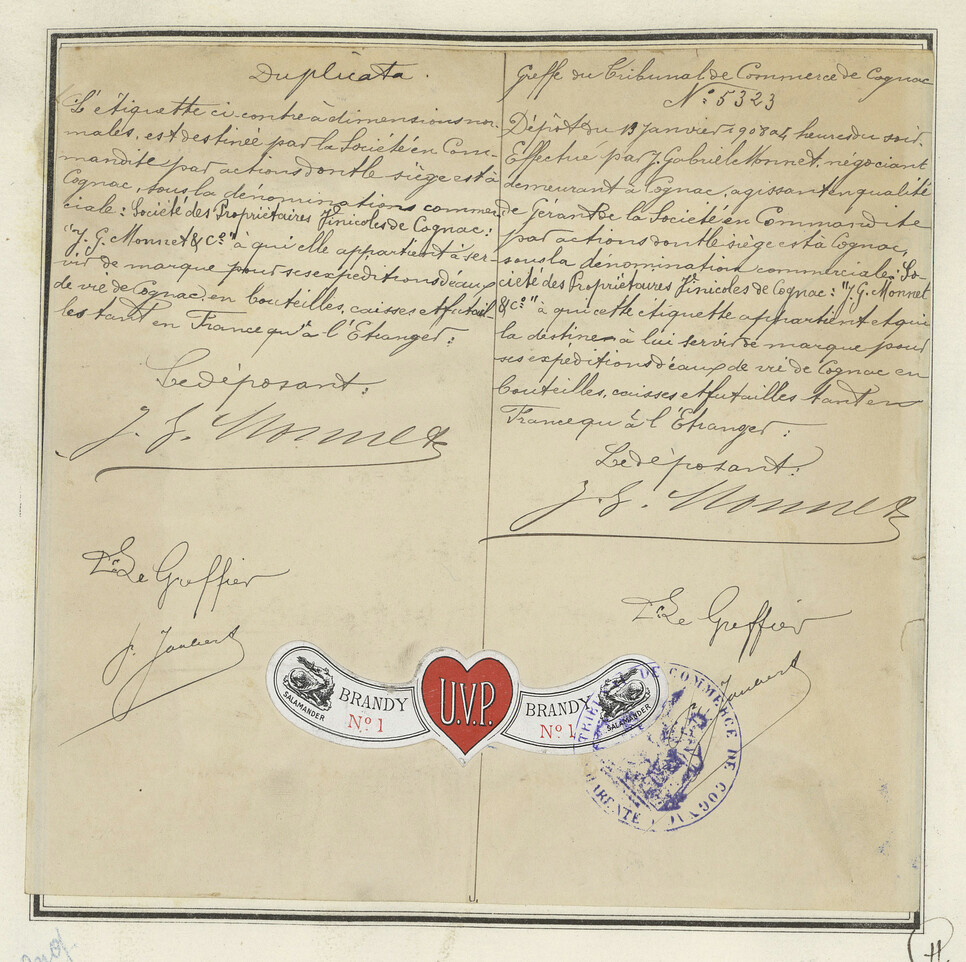 Duplicata.
L'étiquette ci contre à dimensions nor-
males, est destinée par la Société en Com-
mandite par actions dont le siège est à
Cognac, sous la dénomination commer-
ciale: Société des Propriétaires Vinicoles de Cognac:
"J. G. Monnet & Co" à qui elle appartient à ser-
vir de marque pour ses expéditions d'eaux
de vie de Cognac, en bouteilles, caisses et futail-
les tant en France qu'à l'Etranger:
Le déposant:
J. G. Monnet
Le Greffier
Joubert
Greffe du Tribunal de Commerce de Cognac
No 5323
Dépôt du 13 Janvier 1908 à 4 heures du soir.
Effectué par J. Gabriel Monnet, négociant
demeurant à Cognac, agissant en qualité
de Gérant de la Société en Commandite
par actions dont le siège est à Cognac,
sous la dénomination commerciale: So-
ciété des Propriétaires Vinicoles de Cognac: "J. G. Monnet
& Co" à qui cette étiquette appartient et qui
la destine à lui servir de marque pour
ses expéditions d'eaux de vie de Cognac en
bouteilles, caisses et futailles tant en
France qu'à l'Etranger:
Le déposant:
J. G. Monnet
Le Greffier
Joubert
SALAMANDER
BRANDY
No 1
U.V.P.
BRANDY
No 1
SALAMANDER
DE COMMERCE DE COGNAC
H.